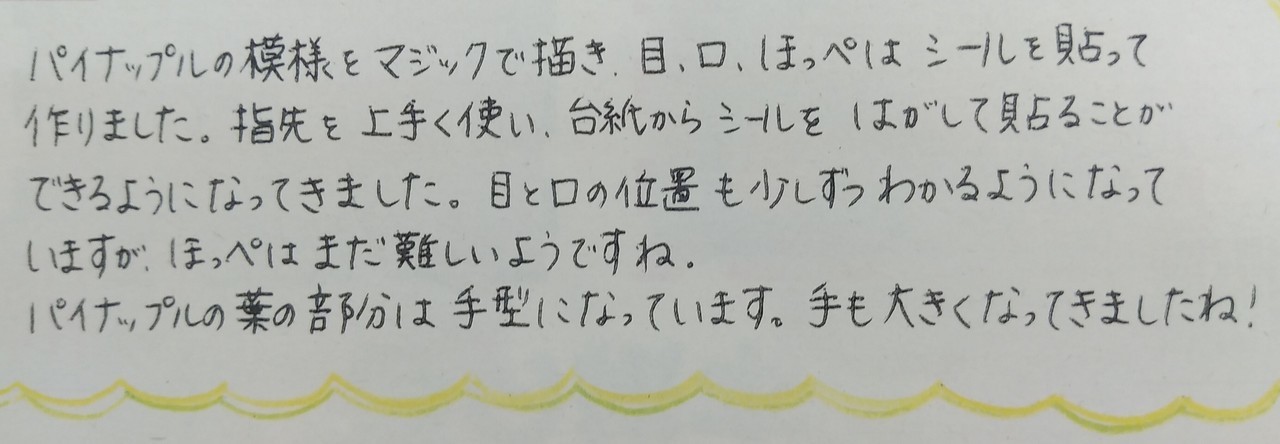 パイナップルの模様をマジックで描き、目、口、ほっぺは シールを貼って
作りました。指先を上手く使い、台紙からシールを はがして貼ることが
できるようになってきました。目と口の位置も少しずつわかるようになって
いますが、ほっぺはまだ難しいようですね。
パイナップルの葉の部分は手型になっています。手も大きくなってきましたね!